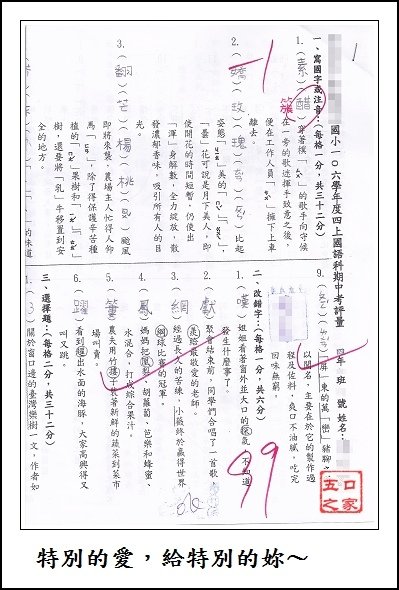 國小一〇六學年度四上國語科期中考評量
四年 班 號 姓名：
1
一、寫國字或注音：（每格一分，共三十二分）
-1
99
簇
1.（素）（醋）穿著樸「ㄙㄨˋ」的歌手向守候
在一旁的歌迷揮手致意之後，
便在工作人員「 」擁下上車
離去。
2.（嬌）（玫）（瑰）
比起
姿態「 」美的「 」「 」，
「曇」花可說是月下美人，即
使開花的時間短暫，仍使出
「渾」身解數，全力綻放，散
發濃郁香味，吸引所有人的目
光。
3.（翻）（芒）（楊）（桃）
颱風
即將來襲，農場主人忙得人仰
馬「 」，除了得保護辛苦種
植的「 」果樹和「 」「 」
樹，還要將「乳」牛移置到安
全的地方。
的味道
9.
「屏」東的萬「巒」豬腳
以聞名，主要在於它的製作過
程及佐料，爽口不油膩，吃完
回味無窮。
二、改錯字：（每格一分，共六分）
1.（嘆）姐姐看著窗外並大口的氣，不知道
發生什麼事了。
2.（獻）聚會結束前，同學們合唱了一首歌，
給最敬愛的老師。
3.（網）經過長久的苦練，小薇終於贏得世界
球比賽的冠軍。
4.（鳳）媽媽把梨、胡蘿蔔、芭樂和蜂蜜、
水混合，打成綜合果汁。
5.（簍）農夫用竹裝著新鮮的蔬菜到菜市
場叫賣。
6.（躍）看到出水面的海豚，大家高興得又
叫又跳。
三、選擇題：（每格二分，共三十二分）
1.（3）關於窗口邊的臺灣欒樹一文，作者如
五口
之家
特別的愛，給特別的妳～